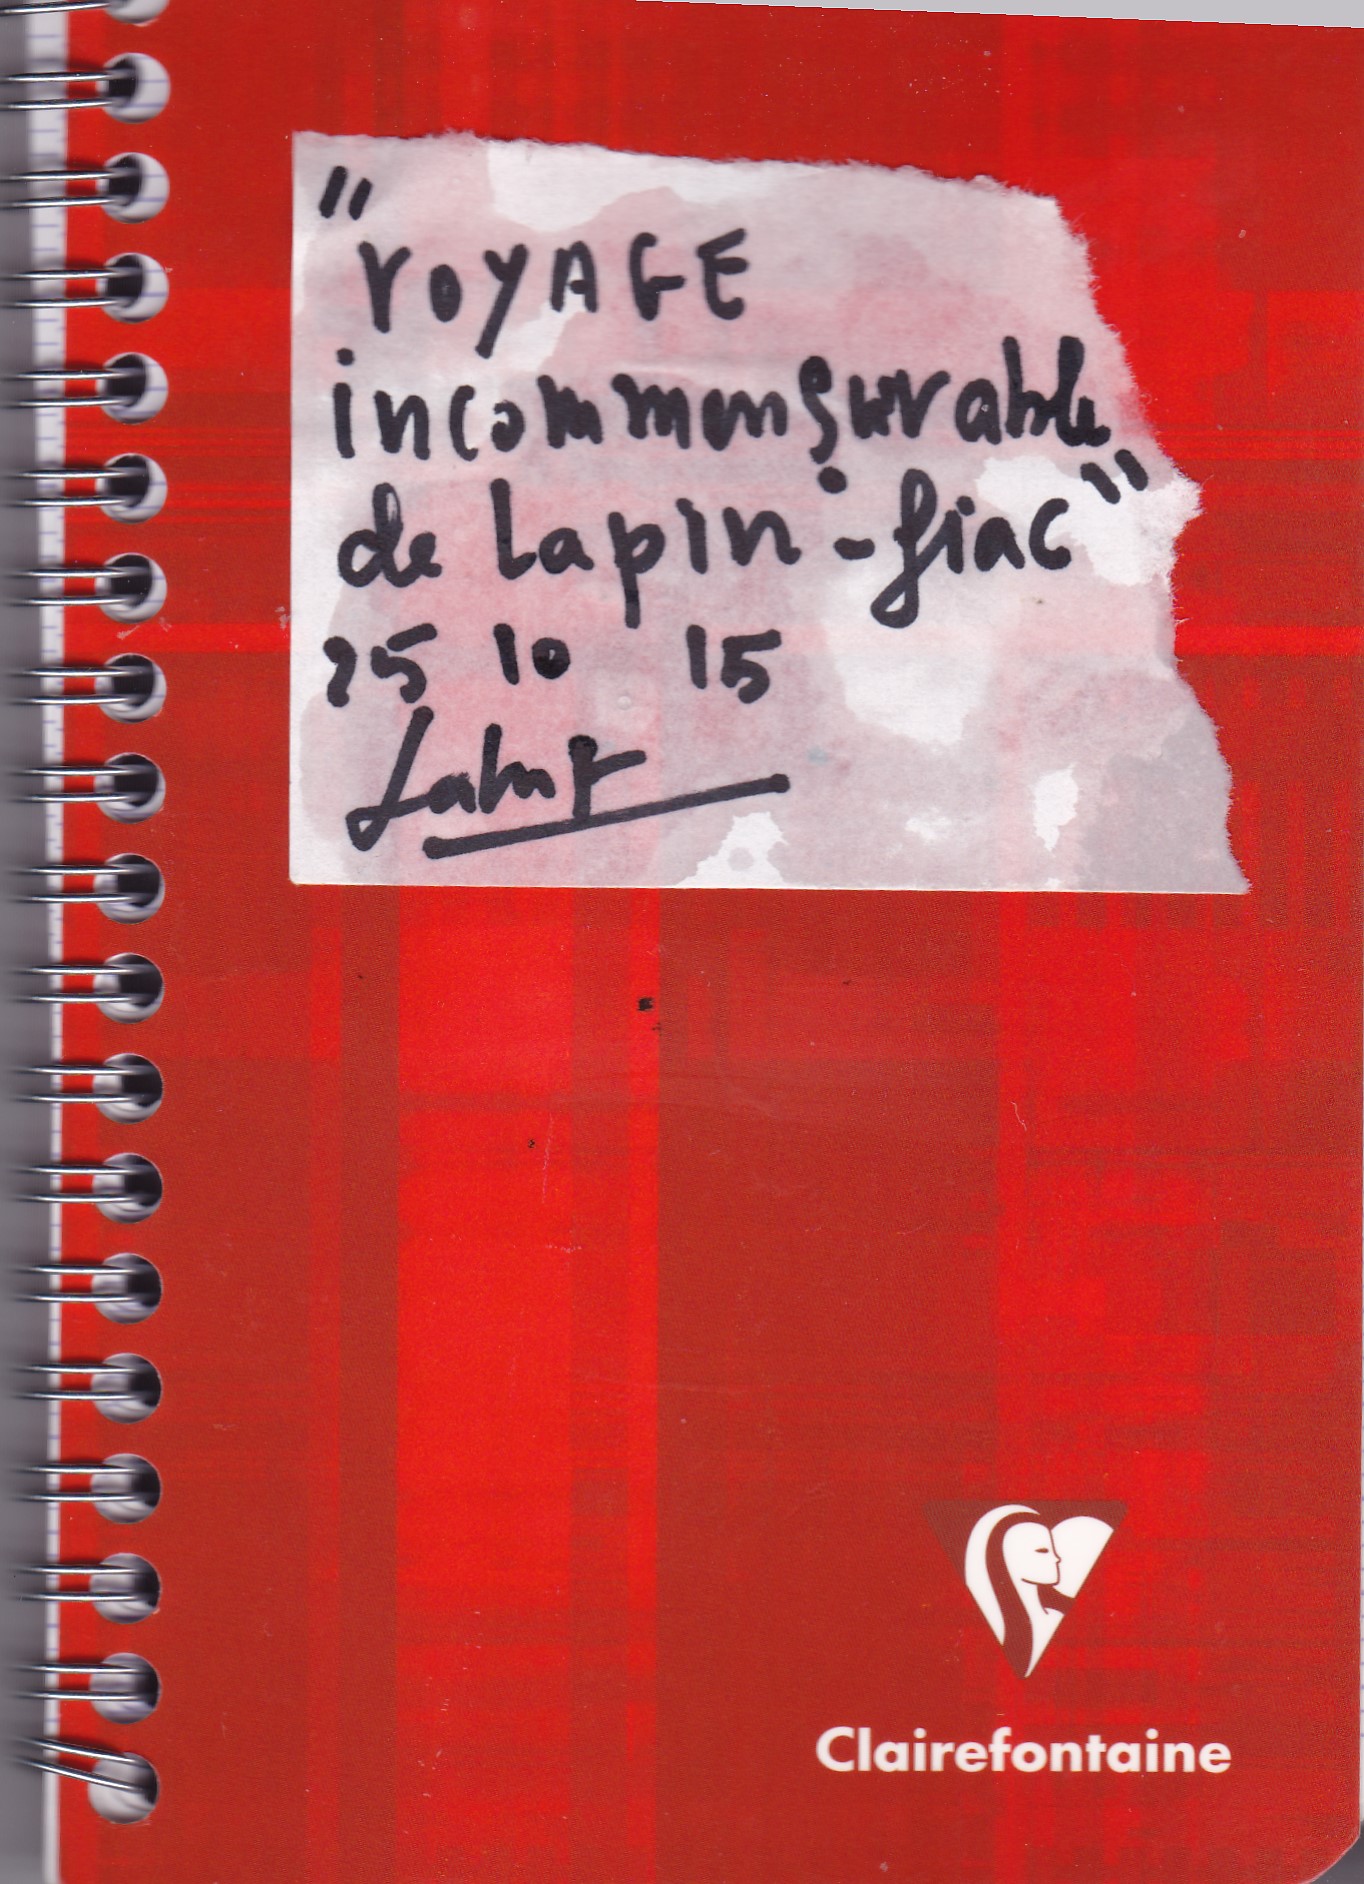 "
VOYAGE
incommensurable
de lapin-fiac"
25 10 15
Clairefontaine